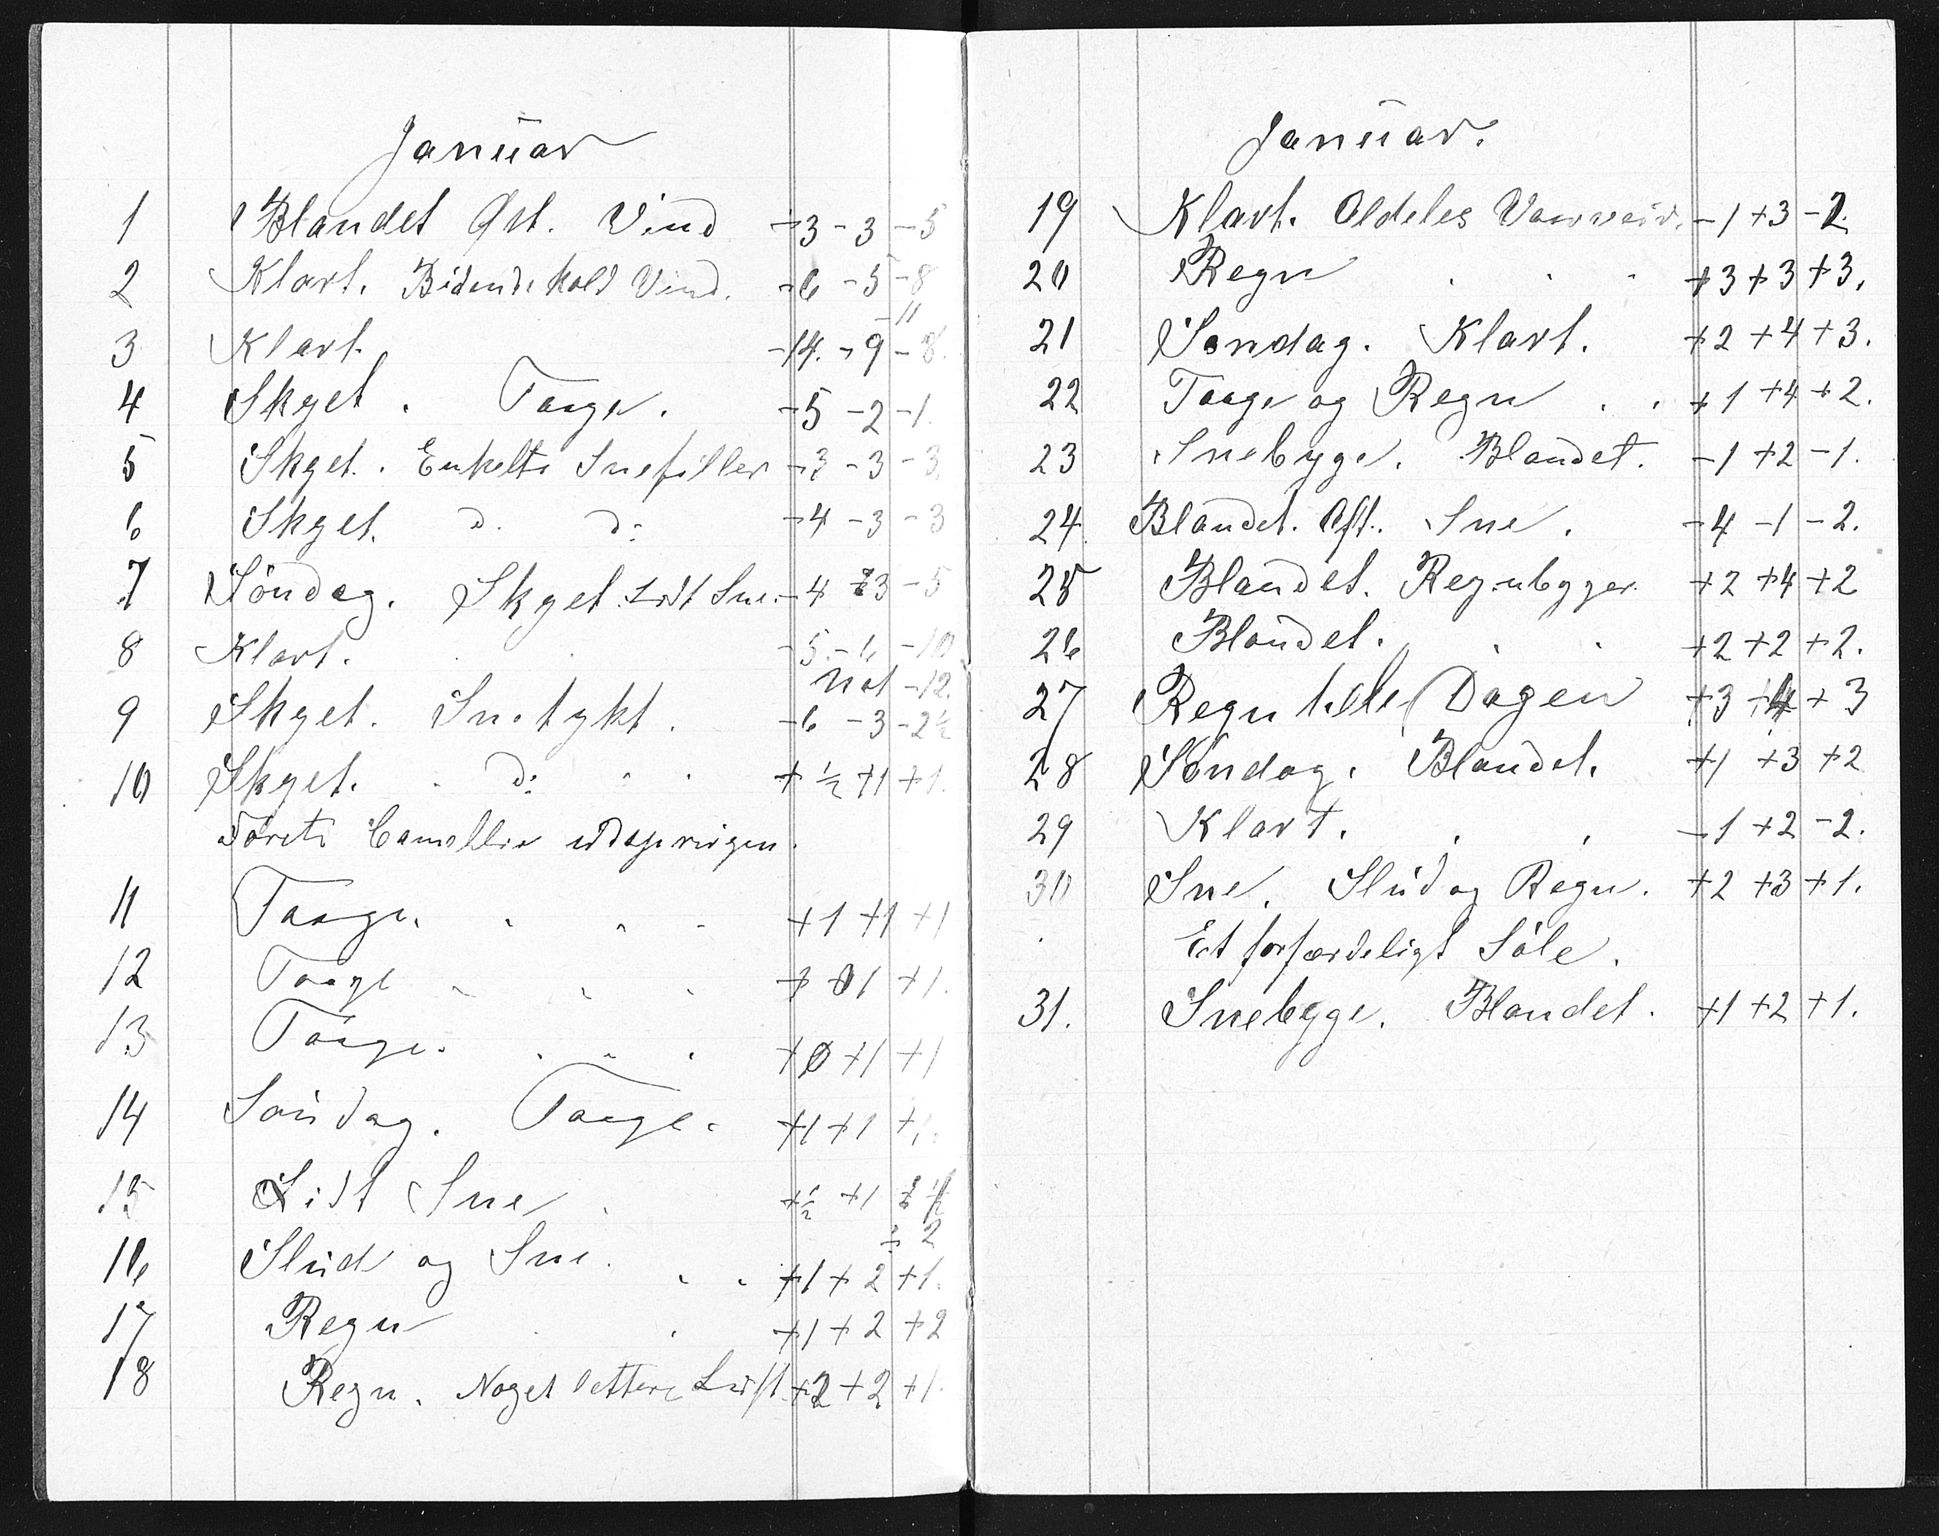 Januar
1 Blandet Øst. Vind -3 -3 -5
2 Klart. Bidende kold Vind. -6 -5 -8
-11
3 Klart. -14. -9 -8.
4 Skyet. Taage. -5 -2 -1.
5 Skyet. Enkelte Snefiller -3 -3 -3
6 Skyet. d. d: -4 -3 -3
7 Söndag. Skyet. Lidt Sne. -4 -3 -5
8 Klart. -5. -6 -10
Nat -12.
9 Skyet. Snetykt. -6 -3 -2½
10 Skyet. d: +½ +1 +1.
Förete Camellie udsprungen.
11 Taage. +1 +1 +1
12 Taage +1 +1.
13 Taage. +0 +1 +1
14 Söndag. Taage. +1 +1 +1.
15 Lidt Sne. +½ +1
÷ 2
16 Slud og Sne. +1 + 2 +1.
17 Regn +1 + 2 +2
18 Regn. Noget lettere Luft. +2 +2 +1.
Januar.
19 Klart. Aldeles Vaarveir. -1 +3 -2.
20 Regn +3 +3 +3.
21 Sondag. Klart. +2 +4 +3.
22 Taage og Regn +1 +4 +2.
23 Snebyge. Blandet. -1 +2 -1.
24. Blandet. Aft. Sne. -4 -1 -2.
25 Blandet. Regnbyger. +2 +4 +2
26 Blandet. +2 +2 +2.
27 Regn hele Dagen +3 +4 + 3
28 Söndag. Blandet. +1 +3 +2
29 Klart. -1 +2 -2.
30 Sne. Slud og Regn. +2 +3 +1.
Et forfærdeligt Söle.
31. Snebyge. Blandet. +1 +2 +1.